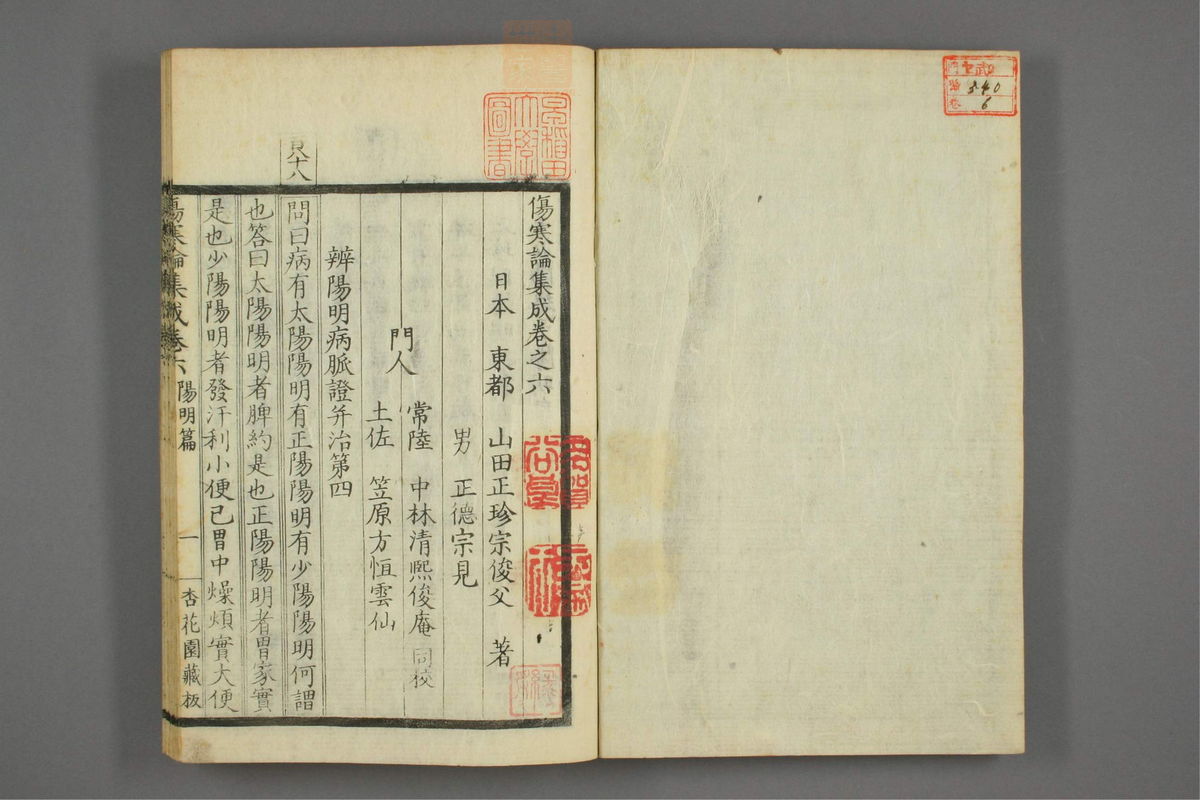 840
6
傷寒論集成卷之六
日本 東都 山田正珍宗俊父 著
男 正德宗見
門人
常陸 中林清熙俊庵 同校
土佐 笠原方恒雲仙
辨陽明病脈證并治第四
十八
問曰病有太陽陽明有正陽陽明有少陽陽明何謂
也答曰太陽陽明者脾約是也正陽陽明者胃家實
是也少陽陽明者發汗利小便已胃中燥煩實大便
傷寒論集成卷六 陽明篇 一 杏花園藏板
早稻田大學圖書